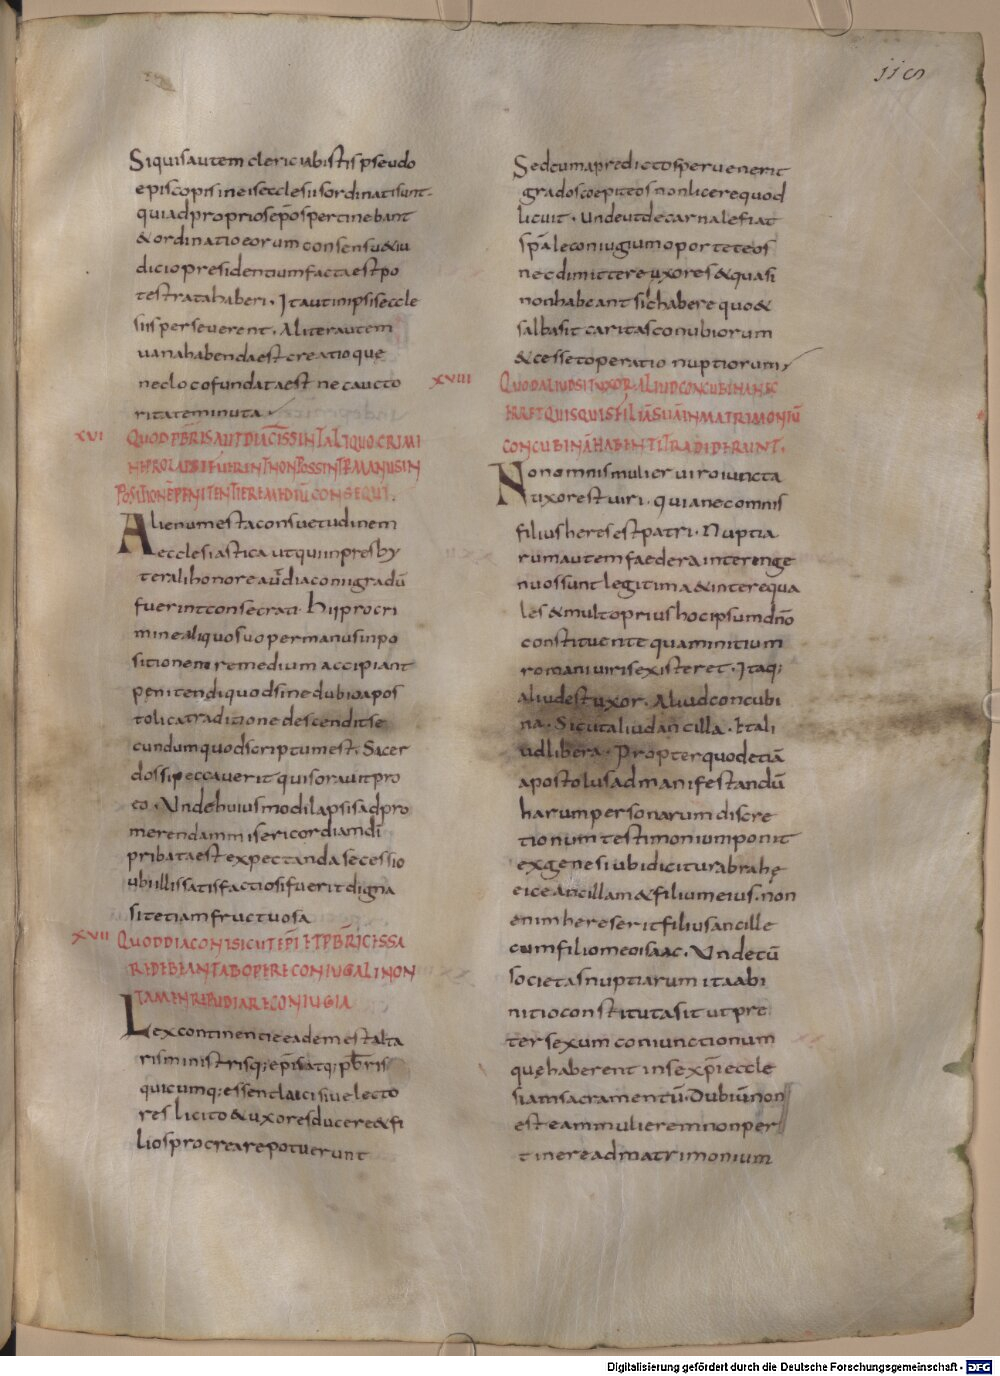 jjs
Si quis autem clerici ab istis pseudo
episcopis in eis ecclesiis ordinati sunt
qui ad proprios ep̄os pertinebant
& ordinatio eorum consensu & iu
dicio presidentium facta est po
test rata haberi. Ita ut in ipsis eccle
siis perseuerent. Aliter autem
uana habenda est creatio quę
nec loco fundata est nec aucto
ritate minuta
XVI QUOD PB̄RIS AUT DIAC̄ISS IN TALI QUO CRIMI
NE PROLAPSI FUERINT NON POSSINT P̄ MANUS IN
POSITIONĒ PENITENTIE REMEDIŪ CONSEQUI.
Alienum est a consuetudinem
ecclesiastica ut qui in presby
terali honore aut̄ diaconii gradū
fuerint consecrati. Hii pro cri
mine aliquo suo per manus inpo
sitionem remedium accipiant
penitendi quod sine dubio apos
tolica traditione descendit se
cundum quod scriptum est. Sacer
dos si peccauerit quis orauit pro
eo. Unde huiusmodi lapsis ad pro
merendam misericordiam dī
pribata est expectanda secessio
ubi illis satisfactio si fuerit digna
sit etiam fructuosa
XVII QUOD DIACONI SICUT EP̄I ET PB̄RI CESSA
RE DEBEANT AB OPERE CONIUGALI NON
TAMEN REPUDIARE CONIUGIA
Lex continentie eadem est alta
ris ministris q; ep̄is atq; pb̄ris
qui cum q; essent laici siue lecto
res licito & uxores ducere & fi
lios procreare potuerunt
Sed cum a predictos peruenerit
grados coepit eos non licere quod
licuit. Unde ut de carnale fiat
sp̄ale coniugium oportet eos
nec dimittere uxores & quasi
non habeant sic habere quo &
salba sit caritas conubiorum
& cesset operatio nuptiorum
XVIII QUOD ALIUD SIT UXOR ALIUD CONCUBINA NEC
ERRET QUISQUIS FILIĀ SUĀ IN MATRIMONIŪ
CONCUBINĀ HABENTI TRADIDERUNT.
Non omnis mulier uiro iuncta
uxor est uiri. quia nec omnis
filius heres est patri. Nuptia
rum autem faedera inter enge
nuos sunt legitima & inter equa
les & multo prius hoc ipsum dn̄o
constituente quam initium
romani uiris existeret. Itaq;
aliud est uxor. Aliud concubi
na. Sicut aliud ancilla. et ali
ud libera. Propter quod etiā
apostolus ad manifestandū
harum personarum discre
tionum testimonium ponit
ex genesi ubi dicitur abrahę
eice ancillam & filium eius. non
enim heres erit filius ancille
cum filio meo isaac. Unde cū
societas nuptiarum ita ab i
nitio constituta sit ut pre
ter sexum coniunctionum
quę haberent in se xp̄i eccle
siam sacramentū. Dubiū non
est eam mulierem non per
tinere ad matrimonium
Digitalisierung gefördert durch die Deutsche Forschungsgemeinschaft - DFG